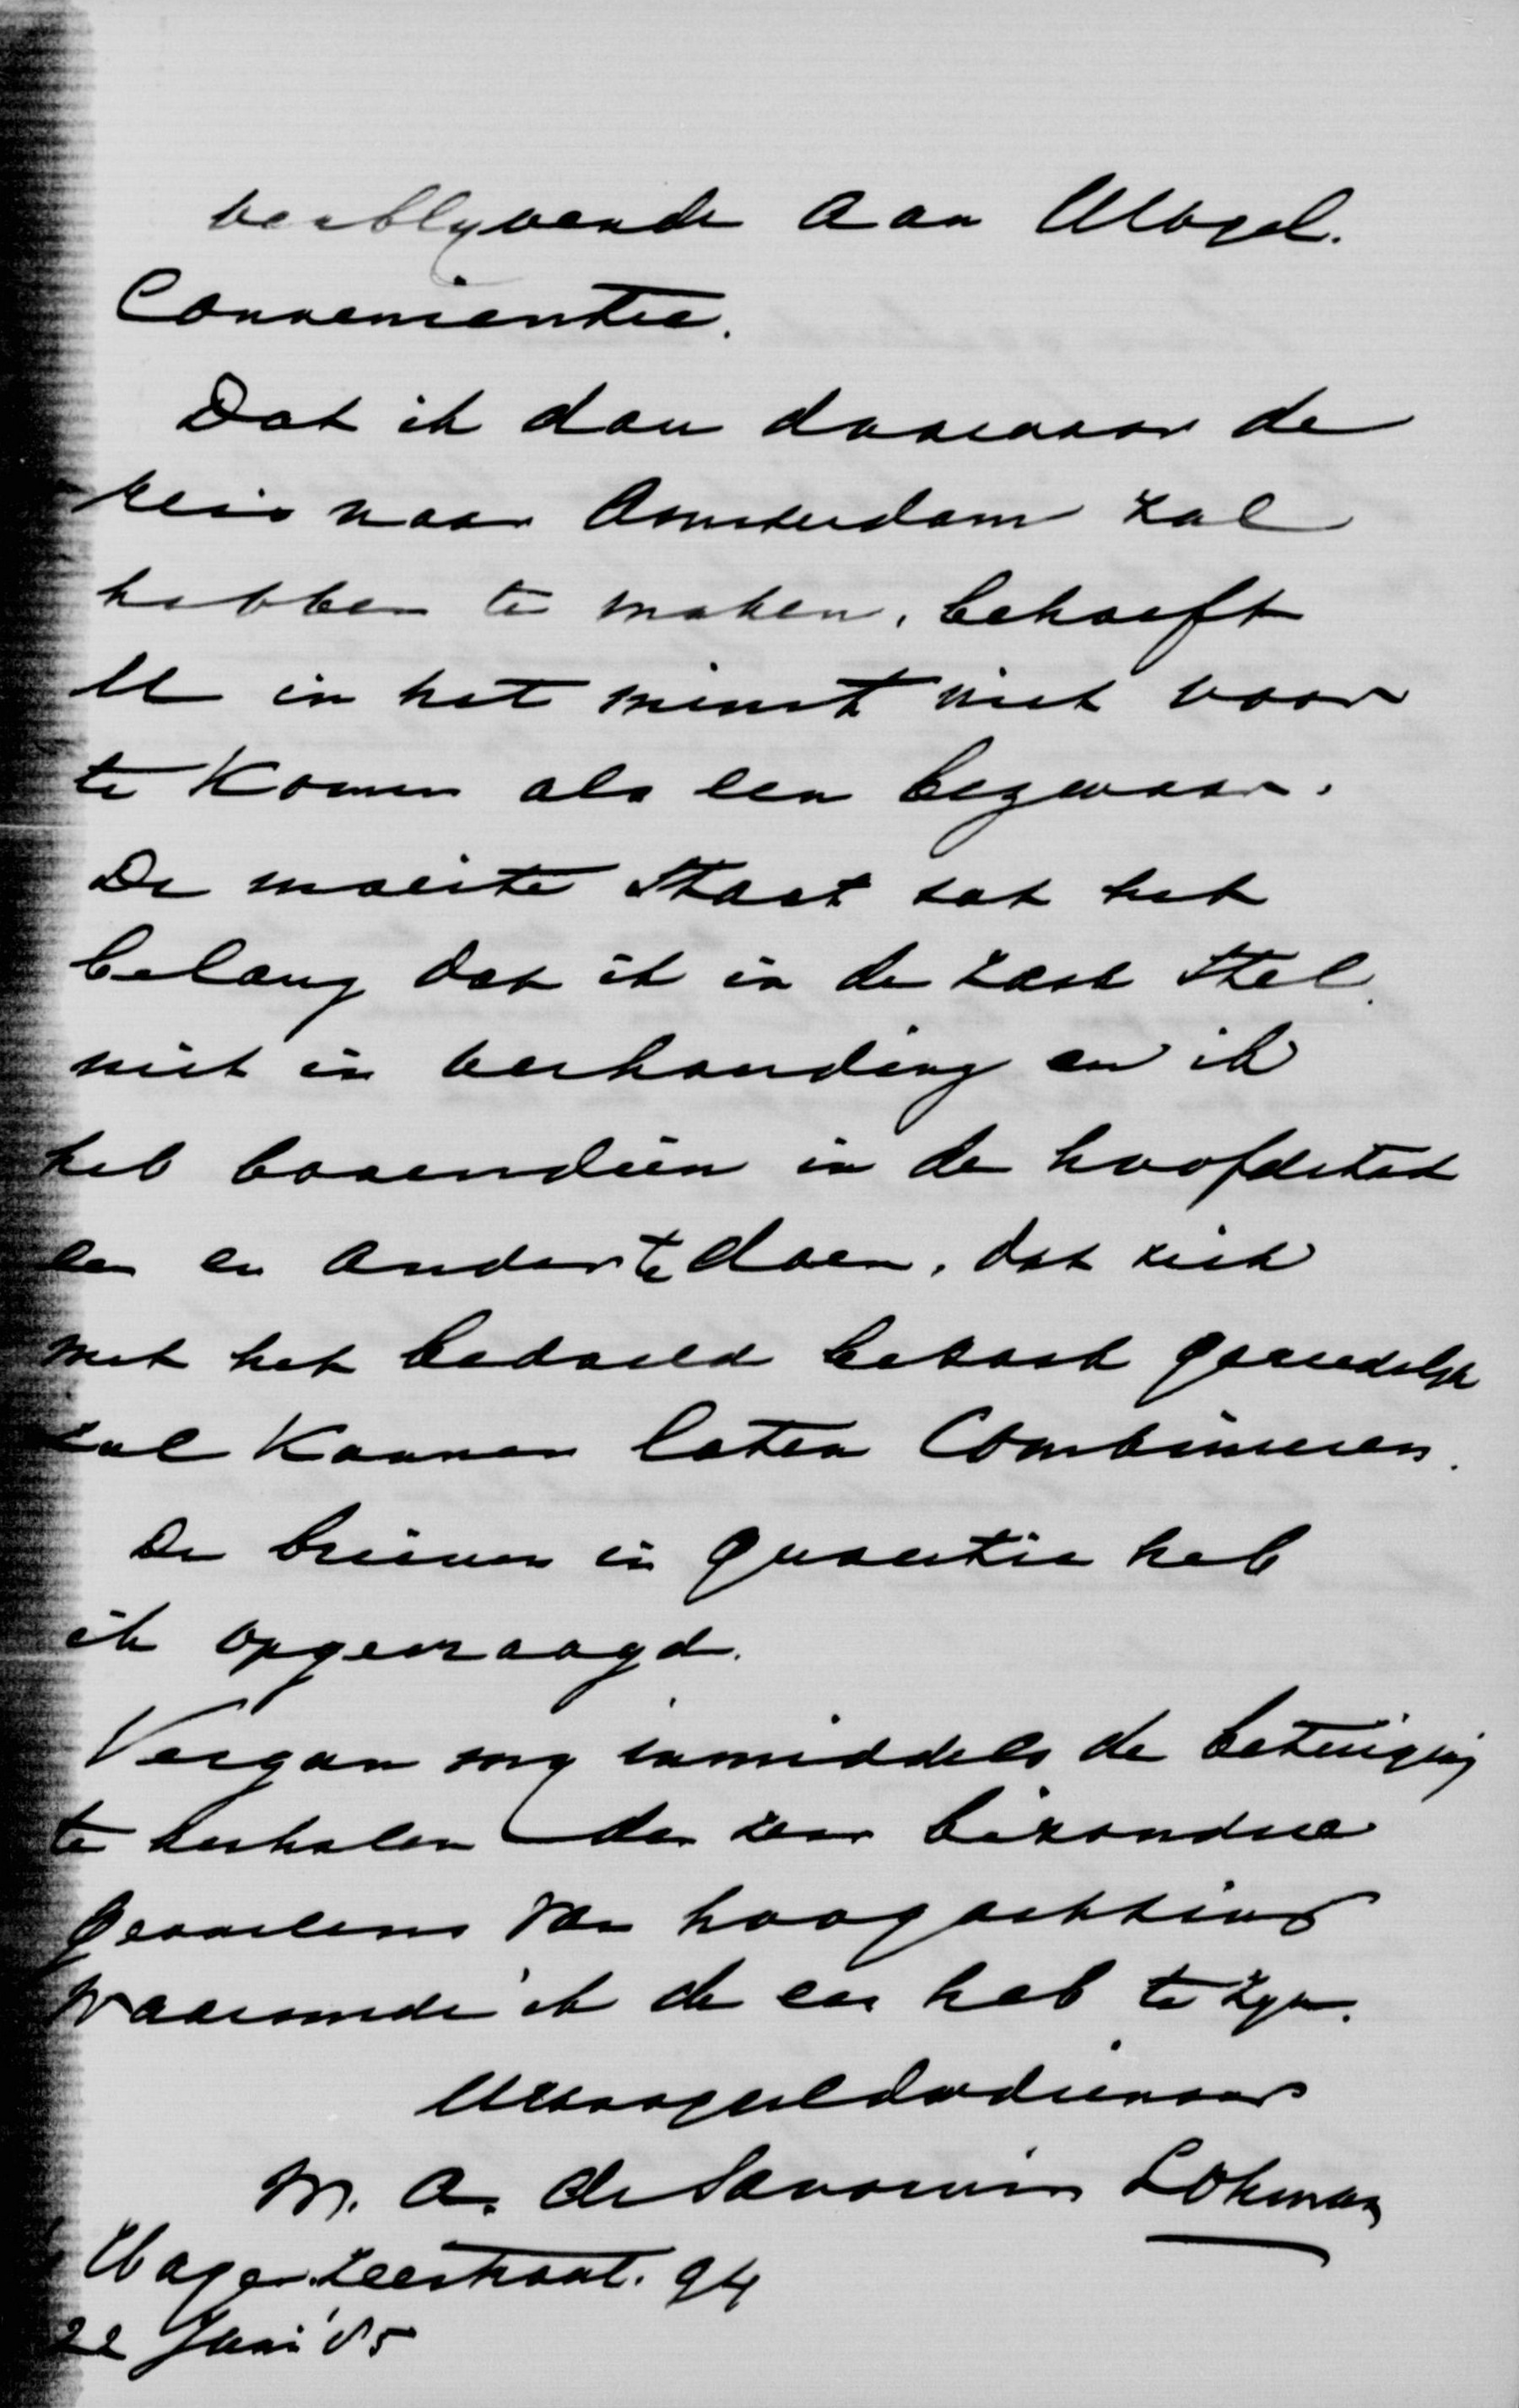 verblyvende aan UEogel.
Convenientie.
Dat ik dan daarvoor de
reis naar Amsterdam zal
hebben te maken, behoeft
U in het minst niet voor
te komen als een bezwaar.
De moeite staat tot het
belang dat ik in de zaak stel
niet in verhouding en ik
heb bovendien in de hoofdstad
een en ander te doen, dat zich
met het bedoeld bezoek gereedelyk
zal kunnen laten combineeren.
De brieven in questie heb
ik opgevraagd.
Vergun my inmiddels de betuiging
te herhalen der zeer bizondere
gevoelens van hoogachting
waarmede ik de eer heb te zyn.
dienaar
M. A. de Savornin Lohman
Hage Zeestraat. 94
22 Juni '85